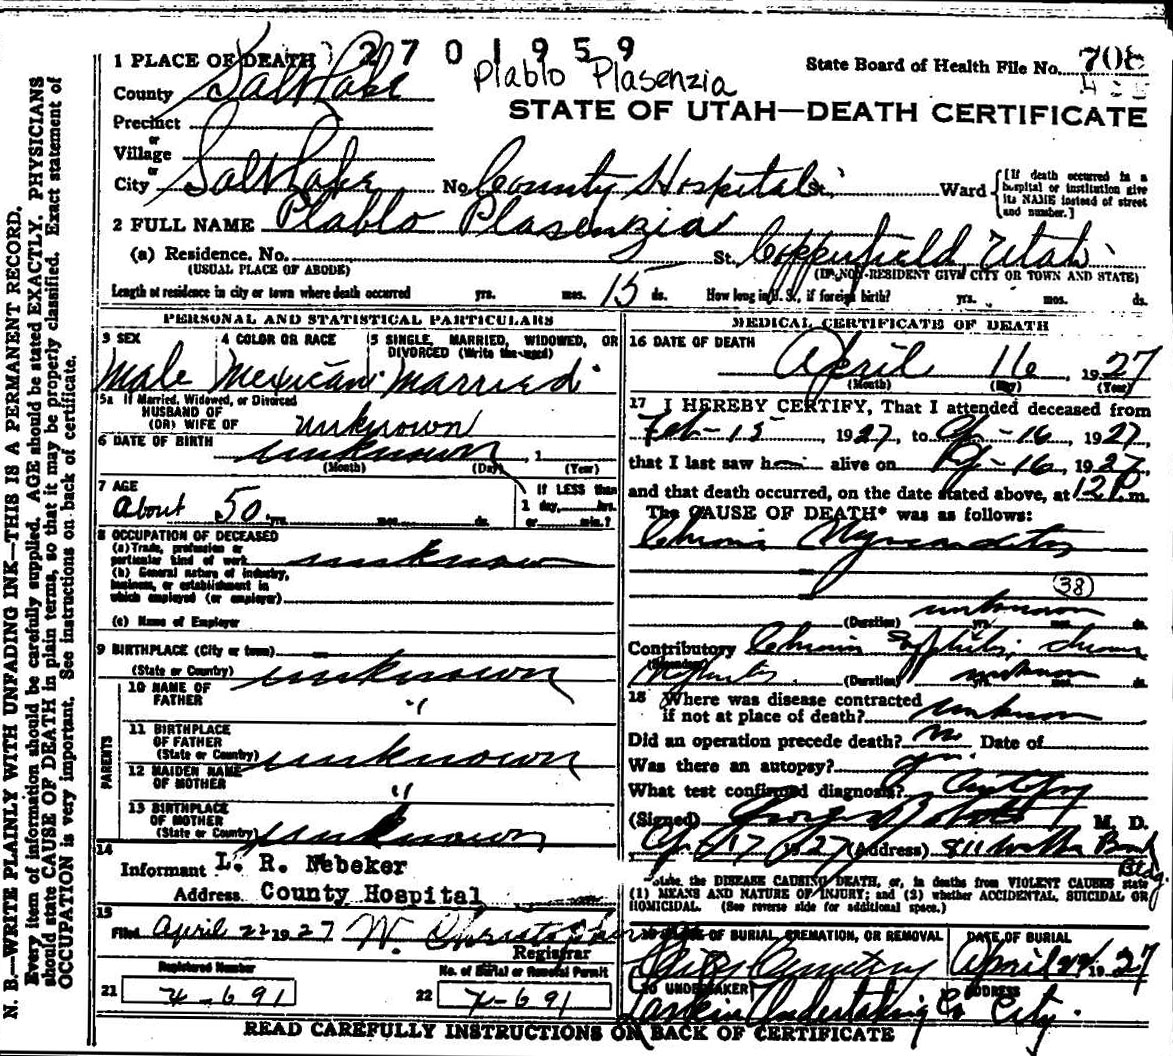 2701959
Plablo Plasenzia
State Board of Health File No. 708
STATE OF UTAH—DEATH CERTIFICATE
1 PLACE OF DEATH
County Salt Lake
Precinct
or
Village
or
City Salt Lake No. County Hospital St. Ward
[If death occurred in a hospital or institution give its NAME instead of street and number.]
2 FULL NAME Plablo Plasenzia
(a) Residence. No. St. Copperfield Utah
(USUAL PLACE OF ABODE) (IF NON-RESIDENT GIVE CITY OR TOWN AND STATE)
Length of residence in city or town where death occurred yrs. mos. 15 ds. How long in U. S., if foreign birth? yrs. mos. ds.
PERSONAL AND STATISTICAL PARTICULARS
3 SEX
Male
4 COLOR OR RACE
Mexican
5 SINGLE, MARRIED, WIDOWED, OR DIVORCED (Write the word)
Married
5a If Married, Widowed, or Divorced
HUSBAND OF
(OR) WIFE OF unknown
6 DATE OF BIRTH unknown, 1
(Month) (Day) (Year)
7 AGE
About 50 yrs. mos. ds.
If LESS than
1 day, hrs.
or min.?
8 OCCUPATION OF DECEASED
(a) Trade, profession or
particular kind of work
(b) General nature of industry,
business, or establishment in
which employed (or employer)
(c) Name of Employer
9 BIRTHPLACE (City or town)
(State or Country) unknown
PARENTS
10 NAME OF
FATHER "
11 BIRTHPLACE
OF FATHER
(State or Country) unknown
12 MAIDEN NAME
OF MOTHER "
13 BIRTHPLACE
OF MOTHER
(State or Country) unknown
14
Informant L. R. Nebeker
Address County Hospital
15
Filed April 22 1927 W. Christopherson
Registrar
Registered Number
21
No. of Burial or Removal Permit
22
MEDICAL CERTIFICATE OF DEATH
16 DATE OF DEATH April 16 1927
(Month) (Day) (Year)
17 I HEREBY CERTIFY, That I attended deceased from
Feb-15, 1927, to Ap-16, 1927,
that I last saw him alive on Ap-16, 1927,
and that death occurred, on the date stated above, at 12 P.m.
The CAUSE OF DEATH* was as follows:
Chronic Myocarditis
38
unknown
(Duration) yrs. mos. ds.
Contributory Chronic Syphilis, chronic
(Secondary) Nephritis (Duration) unknown yrs. mos. ds.
18 Where was disease contracted
if not at place of death? unknown
Did an operation precede death? no Date of
Was there an autopsy? yes
What test confirmed diagnosis? Autopsy
(Signed) M. D.
Ap-17 1927 (Address) 811 Bank Bldg.
*State the DISEASE CAUSING DEATH, or, in deaths from VIOLENT CAUSES state
(1) MEANS AND NATURE OF INJURY; and (2) whether ACCIDENTAL, SUICIDAL OR
HOMICIDAL. (See reverse side for additional space.)
19 PLACE OF BURIAL, CREMATION, OR REMOVAL
City Cemetery
DATE OF BURIAL
April 22 1927
20 UNDERTAKER
Larkin Undertaking Co
ADDRESS
City.
READ CAREFULLY INSTRUCTIONS ON BACK OF CERTIFICATE
N. B.—WRITE PLAINLY WITH UNFADING INK—THIS IS A PERMANENT RECORD.
Every item of information should be carefully supplied. AGE should be stated EXACTLY. PHYSICIANS
should state CAUSE OF DEATH in plain terms, so that it may be properly classified. Exact statement of
OCCUPATION is very important. See instructions on back of certificate.